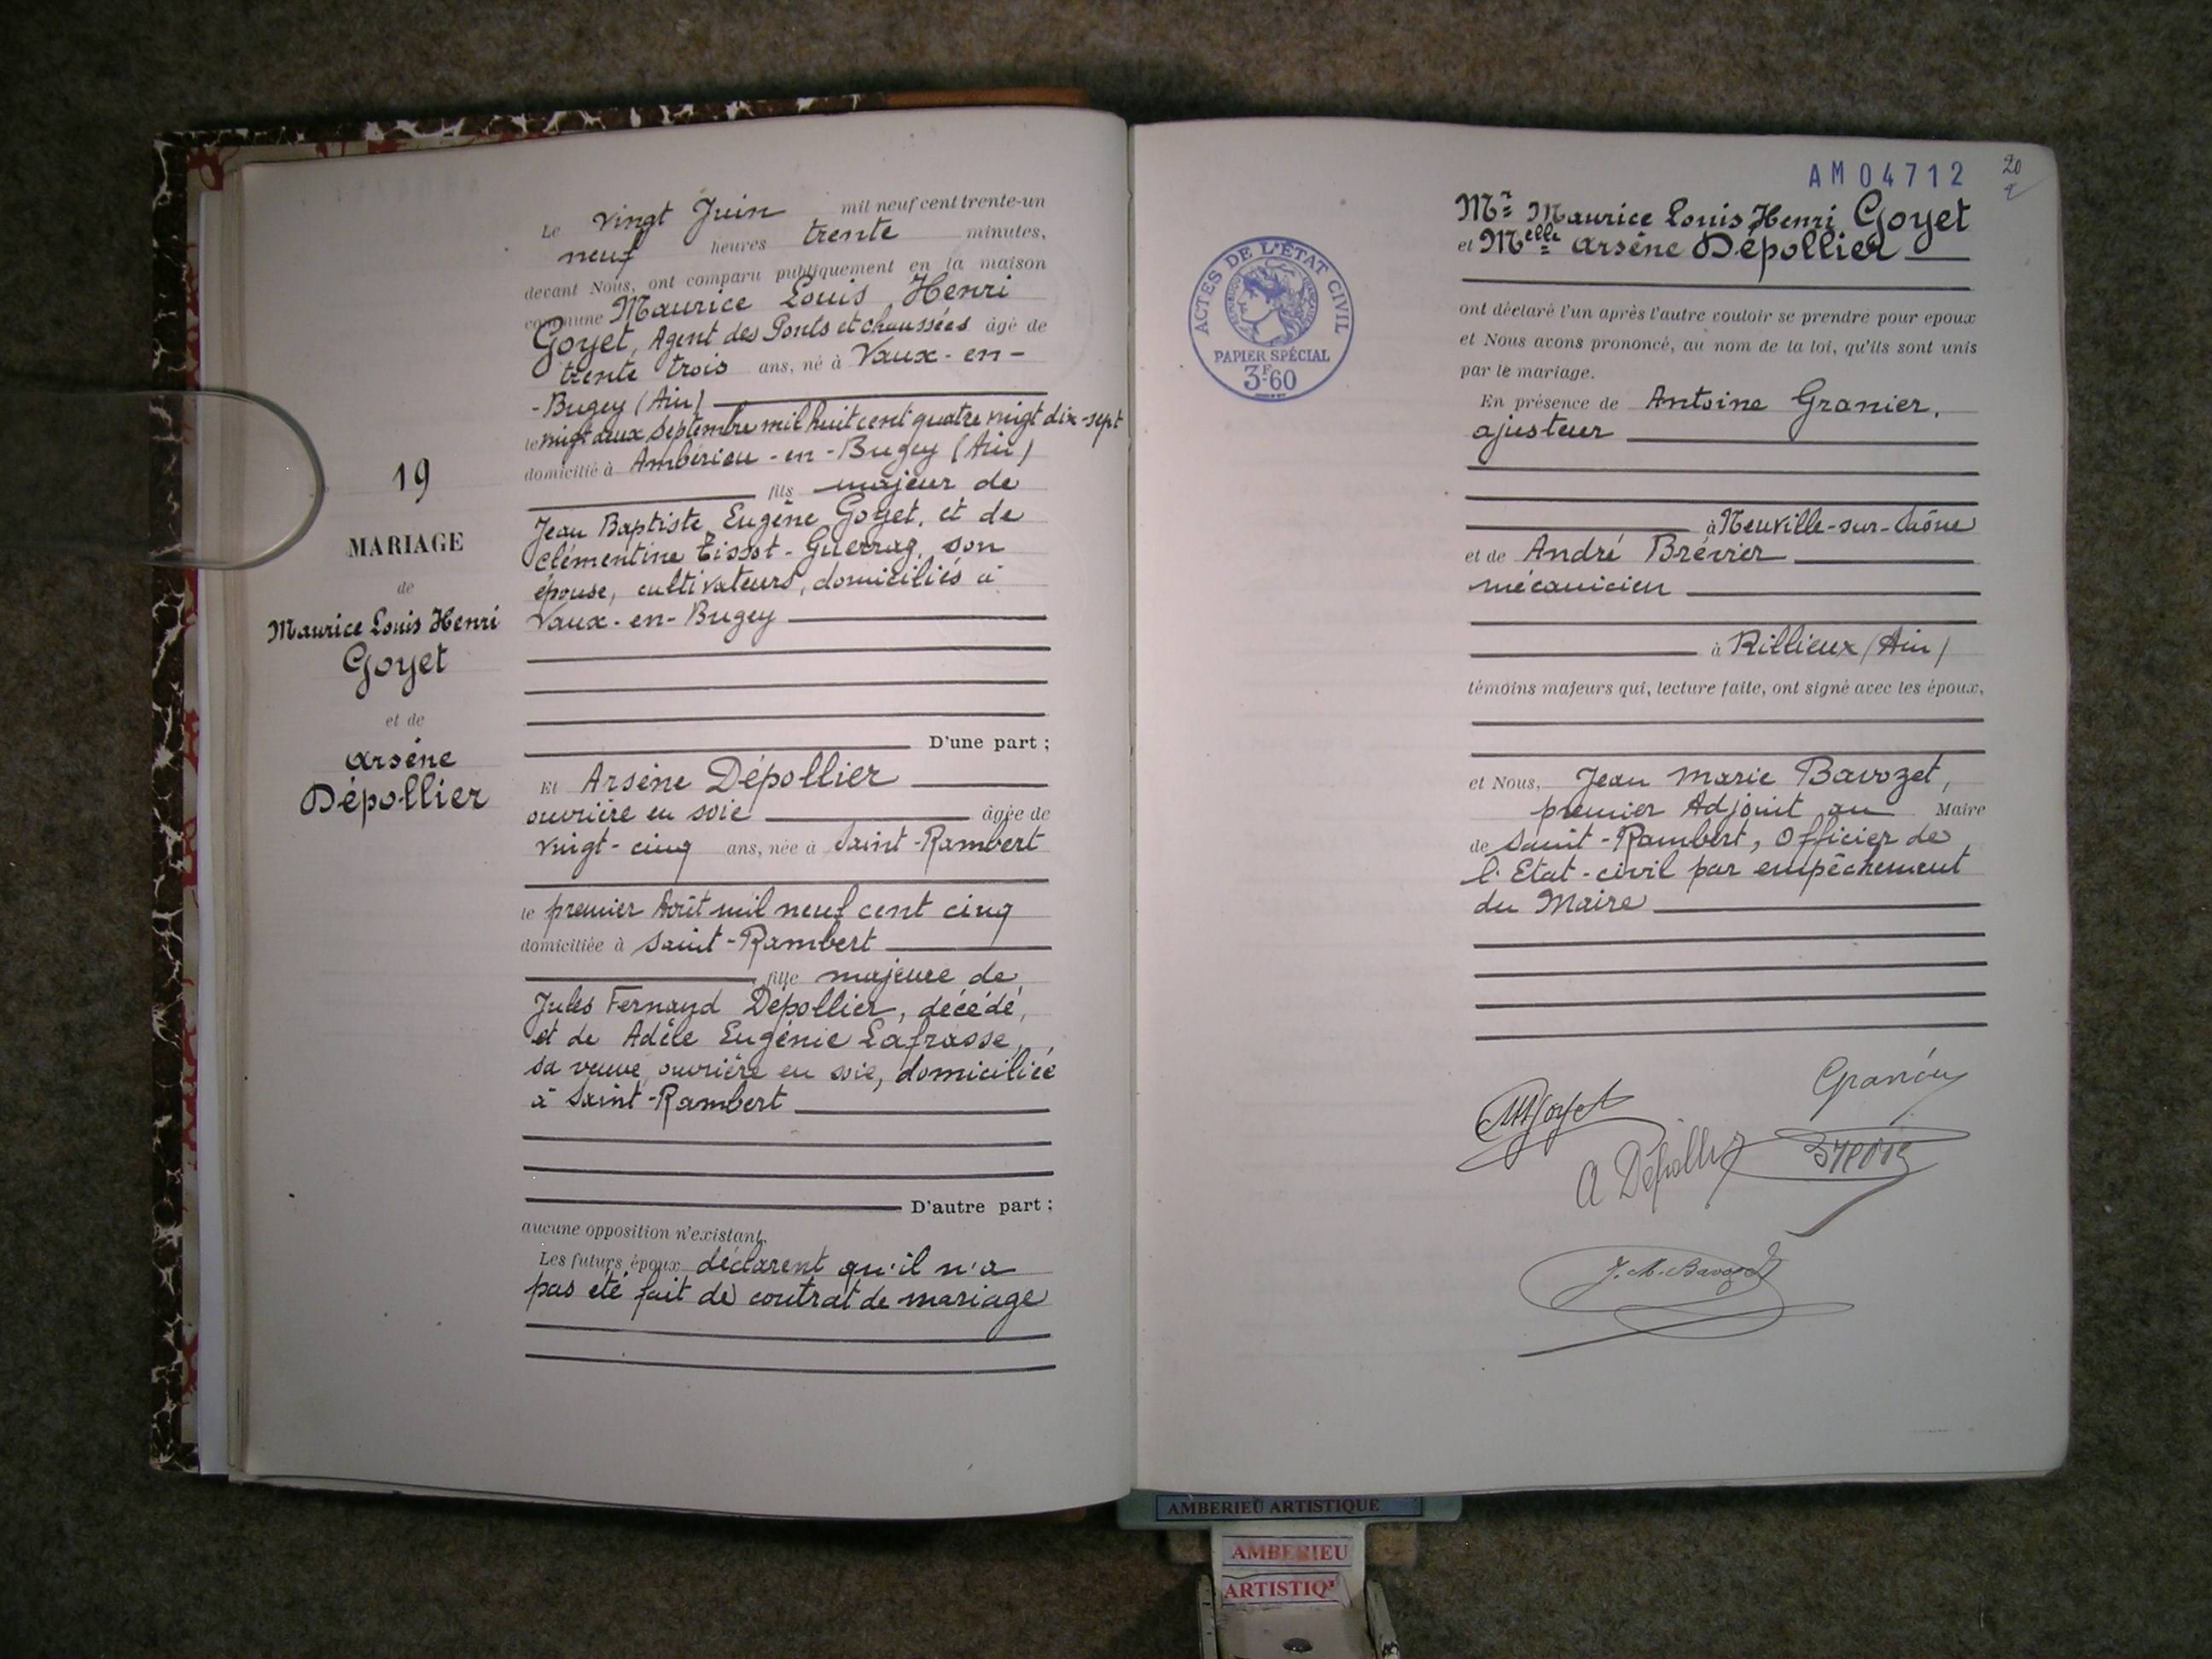 19
MARIAGE
de
Maurice Louis Henri
Goyet
et de
Arsène
Dépollier
Le vingt Juin mil neuf cent trente-un
neuf heures trente minutes,
devant Nous, ont comparu publiquement en la maison
commune Maurice Louis Henri
Goyet, Agent des Ponts et chaussées âgé de
trente trois ans, né à Vaux-en-
-Bugey (Ain)
le vingt deux Septembre mil huit cent quatre vingt dix-sept
domicilié à Ambérieu-en-Bugey (Ain)
fils majeur de
Jean Baptiste Eugène Goyet, et de
Clémentine Tissot-Guerraz, son
épouse, cultivateurs, domiciliés à
Vaux-en-Bugey
D'une part ;
Et Arsène Dépollier
ouvrière en soie âgée de
vingt-cinq ans, née à Saint-Rambert
le premier Août mil neuf cent cinq
domiciliée à Saint-Rambert
fille majeure de
Jules Fernand Dépollier, décédé,
et de Adèle Eugénie Lafrasse,
sa veuve, ouvrière en soie, domiciliée
à Saint-Rambert
D'autre part ;
aucune opposition n'existant.
Les futurs époux déclarent qu'il n'a
pas été fait de contrat de mariage
AM04712
20
ACTES DE L'ÉTAT CIVIL
RÉPUBLIQUE FRANÇAISE
PAPIER SPÉCIAL
3F60
Mr Maurice Louis Henri Goyet
et Melle Arsène Dépollier
ont déclaré l'un après l'autre vouloir se prendre pour époux
et Nous avons prononcé, au nom de la loi, qu'ils sont unis
par le mariage.
En présence de Antoine Granier,
ajusteur
à Neuville-sur-Saône
et de André Brévier
mécanicien
à Rillieux (Ain)
témoins majeurs qui, lecture faite, ont signé avec les époux,
et Nous, Jean Marie Bavozet,
premier Adjoint au Maire
de Saint-Rambert, Officier de
l'Etat-civil par empêchement
du Maire
Granier
A Dépollier
J. M. Bavozet
AMBERIEU ARTISTIQUE
AMBERIEU
ARTISTIQ